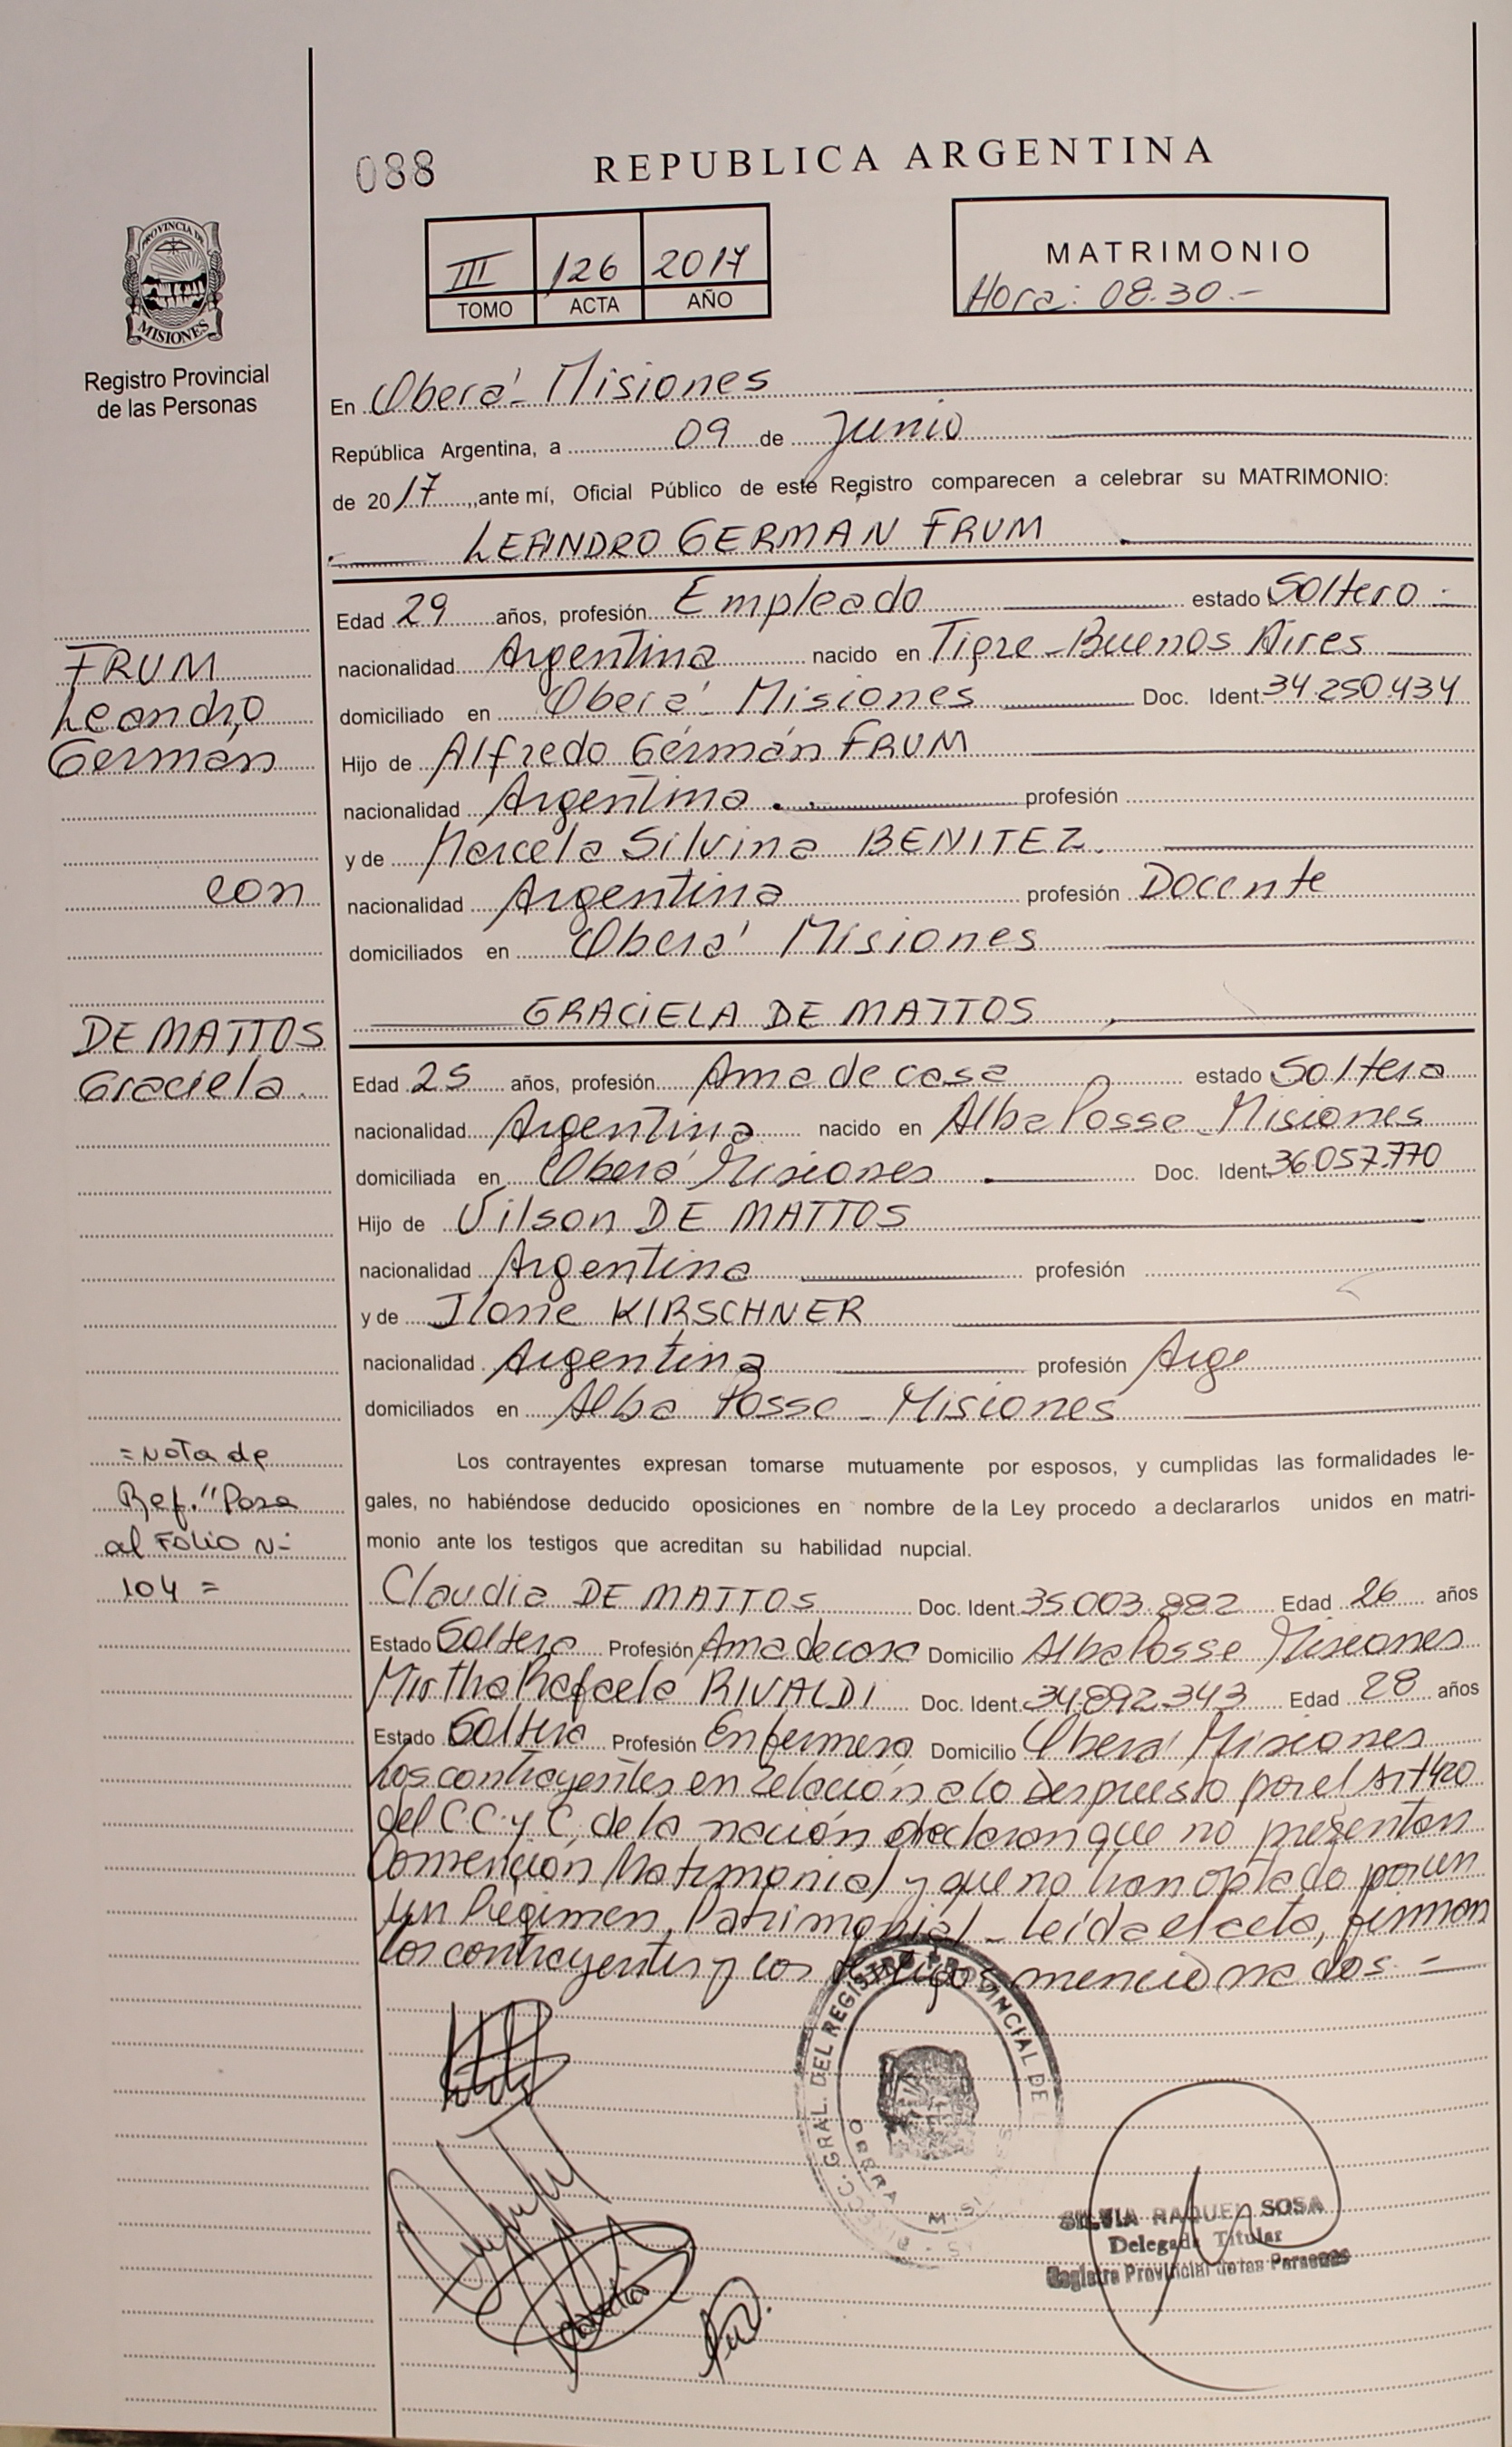 088
REPUBLICA ARGENTINA
PROVINCIA DE
MISIONES
Registro Provincial
de las Personas
III 126 2017
TOMO ACTA AÑO
MATRIMONIO
Hora: 08.30.-
En Oberá - Misiones
República Argentina, a 09 de Junio
de 2017, ante mí, Oficial Público de este Registro comparecen a celebrar su MATRIMONIO:
LEANDRO GERMAN FRUM
Edad 29 años, profesión Empleado estado Soltero -
FRUM
Leandro
German
nacionalidad Argentina nacido en Tigre - Buenos Aires
domiciliado en Oberá - Misiones Doc. Ident. 34.250.434
Hijo de Alfredo Germán FRUM
nacionalidad Argentina profesión
y de Marcela Silvina BENITEZ
con
nacionalidad Argentina profesión Docente
domiciliados en Oberá Misiones
GRACIELA DE MATTOS
DE MATTOS
Graciela
Edad 25 años, profesión Ama de casa estado Soltera
nacionalidad Argentina nacido en Alba Posse - Misiones
domiciliada en Oberá Misiones Doc. Ident. 36.057.770
Hijo de Vilson DE MATTOS
nacionalidad Argentina profesión
y de Ilone KIRSCHNER
nacionalidad Argentina profesión Arge
domiciliados en Alba Posse - Misiones
= Nota de
Ref. "Pasa
al Folio N-
104 =
Los contrayentes expresan tomarse mutuamente por esposos, y cumplidas las formalidades le-
gales, no habiéndose deducido oposiciones en nombre de la Ley procedo a declararlos unidos en matri-
monio ante los testigos que acreditan su habilidad nupcial.
Claudia DE MATTOS Doc. Ident. 35.003.882 Edad 26 años
Estado Soltera Profesión Ama de casa Domicilio Alba Posse Misiones
Mirtha Rafaela RIVALDI Doc. Ident. 34.892.343 Edad 28 años
Estado Soltera Profesión Enfermera Domicilio Oberá Misiones
Los contrayentes en relación a lo Despuesto por el Art 420
del C.C. y C. de la nación declaran que no presentan
Convención Matrimonial y que no han optado por un
un Régimen Patrimonial - Leída el acta, firman
los contrayentes y los testigos mencionados. -
DIRECC. GRAL. DEL REGISTRO PROVINCIAL DE
OBERA MISIONES
SILVIA RAQUEL SOSA
Delegada Titular
Registro Provincial de las Personas